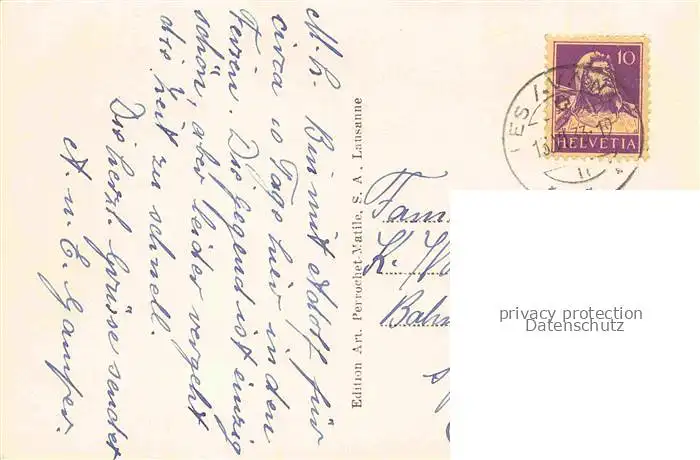 M. L. Bin mit Adolf für
circa 10 Tage hier in den
Ferien. Die Gegend ist einzig
schön, aber leider vergeht
die Zeit zu schnell.
Die herzl. Grüsse senden
A. u. E. Gamper.
Edition Art. Perrochet-Matile, S. A., Lausanne
10
HELVETIA
LES AVANTS
Fam
K.
Bahn
privacy protection
Datenschutz